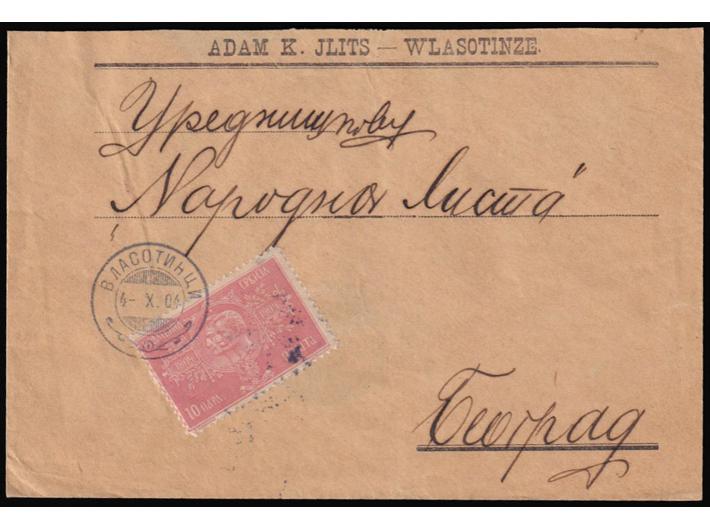 ADAM K. JLITS — WLASOTINZE.
Уредништву
„Народног Листа“
ВЛАСОТИНЦИ
4- X. 04
СРБИЈА
10 ПАРА
Београд